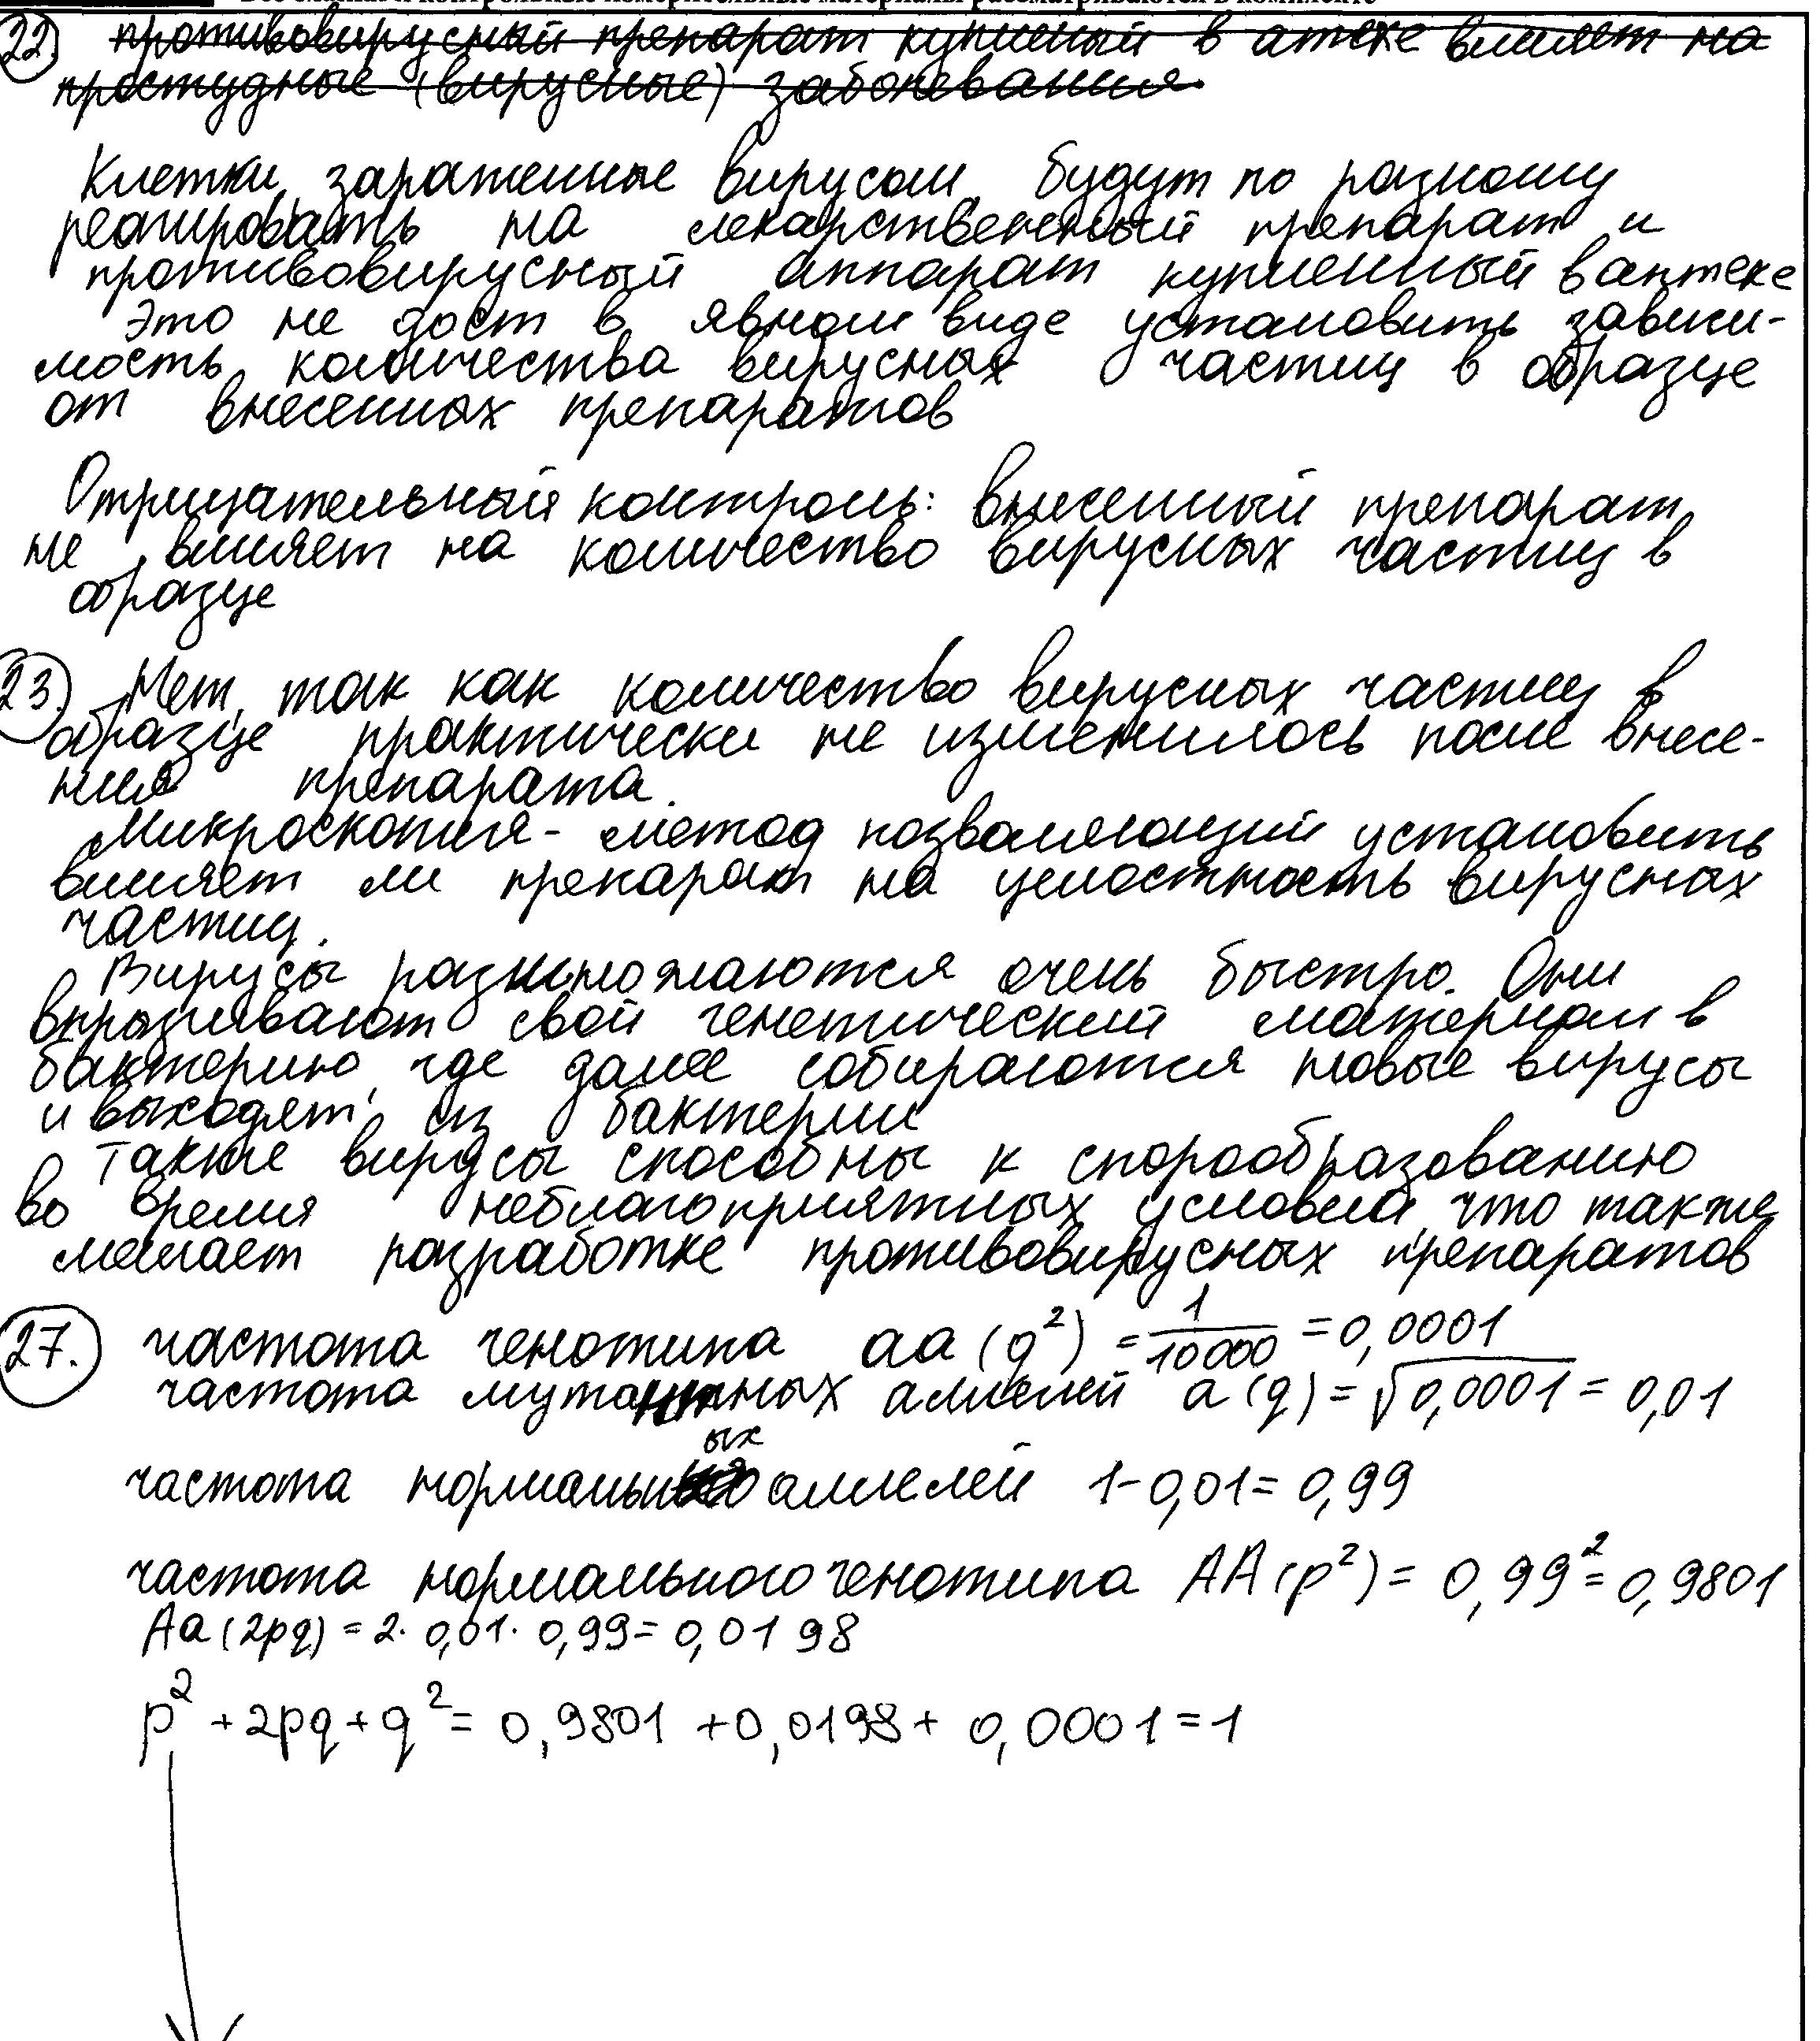 22. противовирусный препарат купленый в атеке влияет на
простудные (вирусные) заболевания.
Клетки, зараженные вирусом, будут по разному
реагировать на лекарственный препарат и
противовирусный аппарат купленный в аптеке
Это не даст в явном виде установить зависи-
мость количества вирусных частиц в образце
от внесенных препаратов
Отрицательный контроль: внесенный препарат
не влияет на количество вирусных частиц в
образце
23. Нет, так как количество вирусных частиц в
образце практически не изменилось после внесе-
ния препарата.
Микроскопия - метод позволяющий установить
влияет ли препарат на целостность вирусных
частиц.
Вирусы размножаются очень быстро. Они
впрыскивают свой генетический материал в
бактерию, где далее собираются новые вирусы
и выходят из бактерии
Также вирусы способны к спорообразованию
во время неблагоприятных условий, что также
мешает разработке противовирусных препаратов
27. частота генотипа aa (q²) = 1/10000 = 0,0001
частота мутантных аллелей a (q) = √0,0001 = 0,01
частота нормальных аллелей 1-0,01= 0,99
частота нормального генотипа AA (p²) = 0,99² = 0,9801
Aa (2pq) = 2· 0,01· 0,99= 0,0198
p² + 2pq + q² = 0,9801 + 0,0198 + 0,0001 = 1